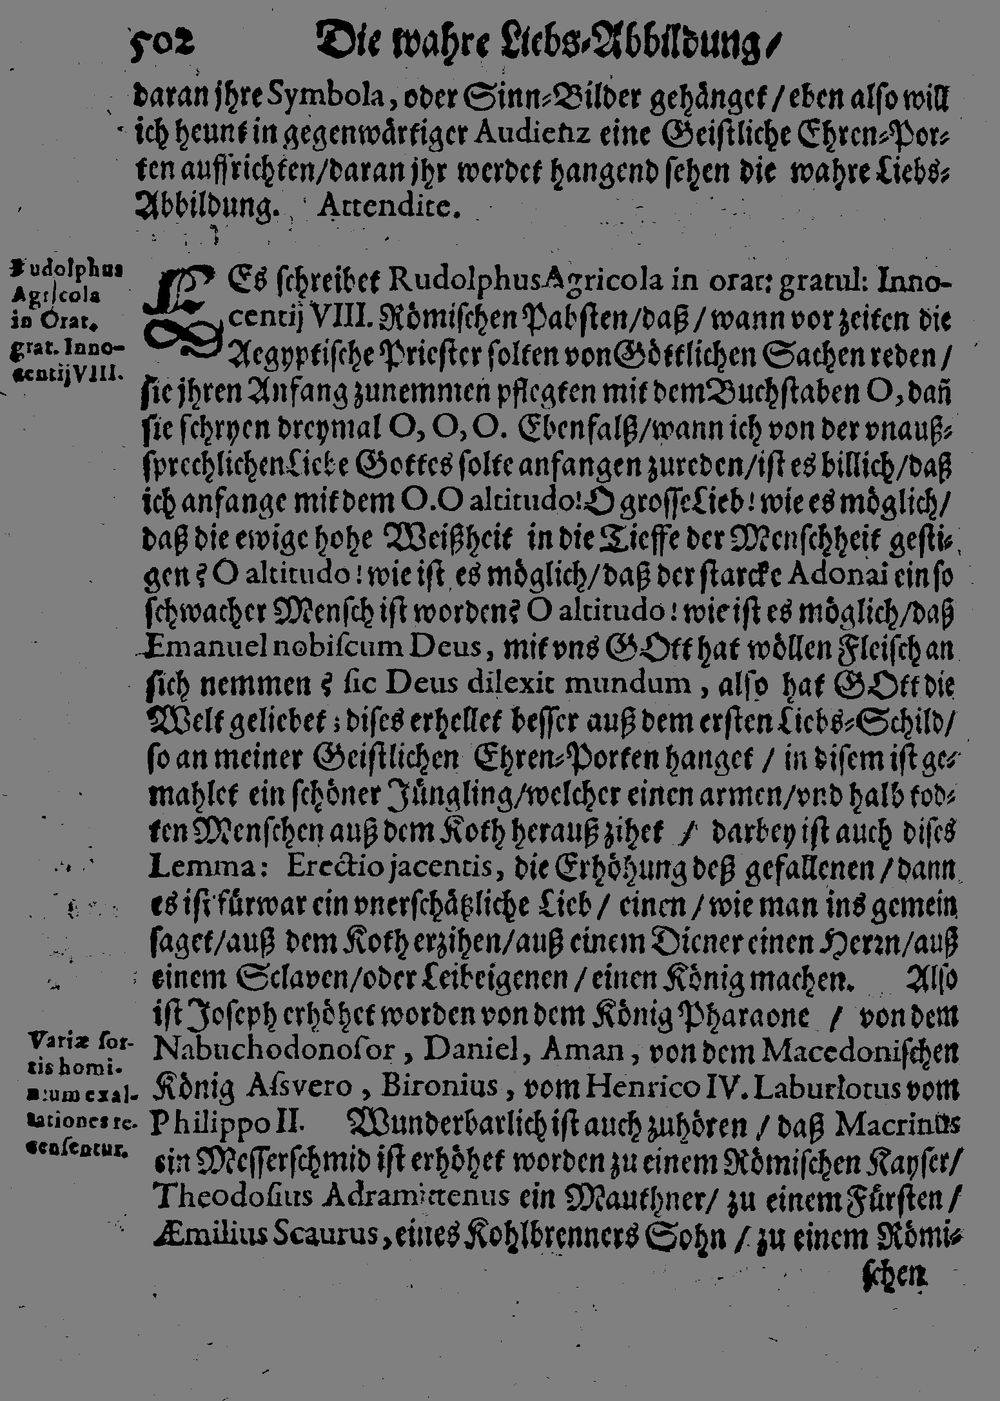 502 Die wahre Liebs-Abbildung/
daran jhre Symbola, oder Sinn-Bilder gehänget / eben also will
ich heunt in gegenwärtiger Audientz eine Geistliche Ehren-Por-
ten auffrichten/daran jhr werdet hangend sehen die wahre Liebs-
Abbildung. Attendite.
Rudolphus
Agricola
in Orat.
grat. Inno-
centij VIII.
ES schreibet Rudolphus Agricola in orat: gratul: Inno-
centij VIII. Römischen Pabsten/daß/wann vor zeiten die
Aegyptische Priester solten von Göttlichen Sachen reden /
sie jhren Anfang zunemmen pflegten mit dem Buchstaben O, dañ
sie schryen dreymal O, O, O. Ebenfalß/wann ich von der vnauß-
sprechlichen Liebe Gottes solte anfangen zureden/ist es billich/daß
ich anfange mit dem O. O altitudo! O grosse Lieb! wie es möglich/
daß die ewige hohe Weißheit in die Tieffe der Menschheit gesti-
gen? O altitudo! wie ist es möglich/daß der starcke Adonai ein so
schwacher Mensch ist worden? O altitudo! wie ist es möglich/daß
Emanuel nobiscum Deus, mit vns GOtt hat wöllen Fleisch an
sich nemmen? sic Deus dilexit mundum, also hat GOtt die
Welt geliebet; dises erhellet besser auß dem ersten Liebs-Schild/
so an meiner Geistlichen Ehren-Porten hanget / in disem ist ge-
mahlet ein schöner Jüngling/welcher einen armen/vnd halb tod-
ten Menschen auß dem Koth herauß zihet / darbey ist auch dises
Lemma: Erectio jacentis, die Erhöhung deß gefallenen / dann
es ist fürwar ein vnerschätzliche Lieb / einen / wie man ins gemein
saget/auß dem Koth erzihen/auß einem Diener einen Herrn/auß
einem Sclaven/oder Leibeigenen / einen König machen. Also
ist Joseph erhöhet worden von dem König Pharaone / von dem
Variæ sor-
tis homi-
num exal-
tationes re-
censentur.
Nabuchodonosor, Daniel, Aman, von dem Macedonischen
König Assvero, Bironius, vom Henrico IV. Laburlotus vom
Philippo II. Wunderbarlich ist auch zuhören / daß Macrinus
ein Messerschmid ist erhöhet worden zu einem Römischen Kayser/
Theodosius Adramittenus ein Mauthner/ zu einem Fürsten /
Æmilius Scaurus, eines Kohlbrenners Sohn / zu einem Römi-
schen